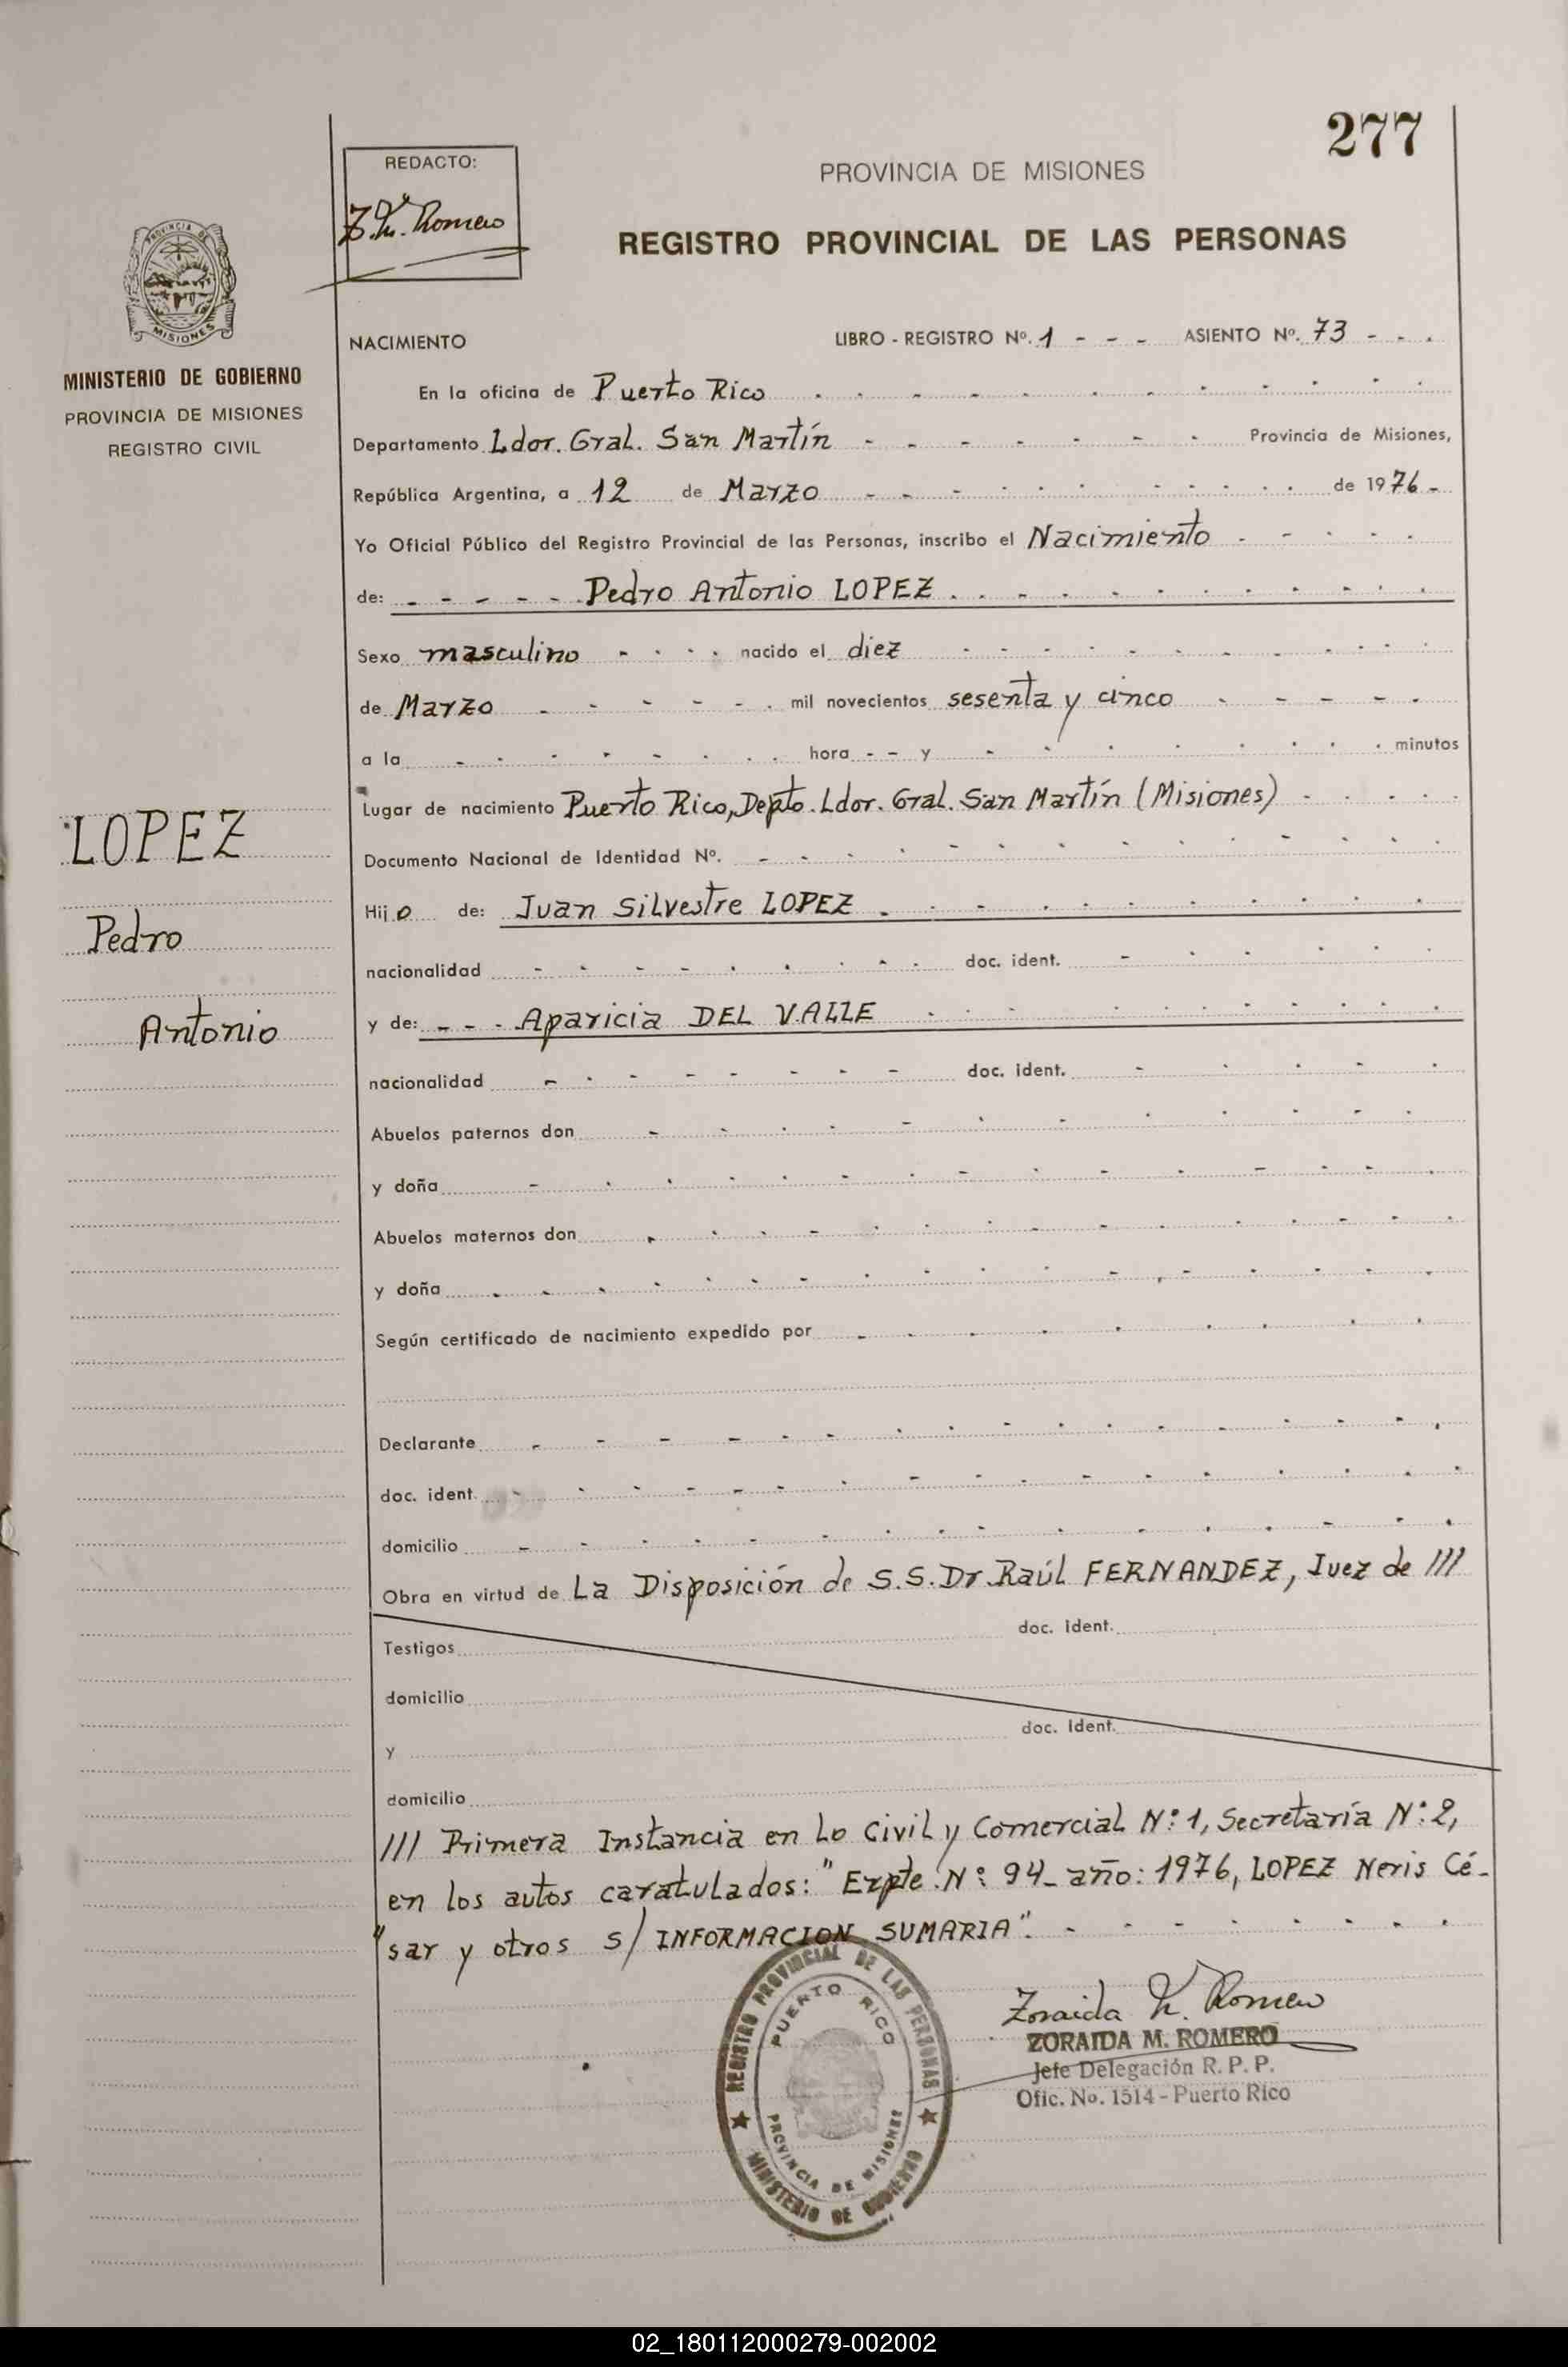 277
REDACTO:
Z. M. Romero
PROVINCIA DE MISIONES
REGISTRO PROVINCIAL DE LAS PERSONAS
PROVINCIA DE
MISIONES
MINISTERIO DE GOBIERNO
PROVINCIA DE MISIONES
REGISTRO CIVIL
LOPEZ
Pedro
Antonio
NACIMIENTO LIBRO - REGISTRO Nº. 1 - - - ASIENTO Nº. 73 - - -
En la oficina de Puerto Rico
Departamento Ldor. Gral. San Martín - - - - - - - Provincia de Misiones,
República Argentina, a 12 de Marzo - - - - - - - - - de 1976 -
Yo Oficial Público del Registro Provincial de las Personas, inscribo el Nacimiento - - - - -
de: - - - - - Pedro Antonio LOPEZ - - - - - - - - - - -
Sexo masculino - - - - nacido el diez - - - - - - - - - -
de Marzo - - - - - - mil novecientos sesenta y cinco - - - - -
a la - - - - - - - hora - - y - - - - - - - - minutos
Lugar de nacimiento Puerto Rico, Depto. Ldor. Gral. San Martín (Misiones) - - - - -
Documento Nacional de Identidad Nº. - - - - - - - - - - - - -
Hijo de: Juan Silvestre LOPEZ - - - - - - - - - -
nacionalidad - - - - - - - - - doc. ident. - - - - -
y de: - - - Aparicia DEL VALLE - - - - - - - - -
nacionalidad - - - - - - - - doc. ident. - - - - -
Abuelos paternos don - - - - - - - - - - - -
y doña - - - - - - - - - - - - - - -
Abuelos maternos don - - - - - - - - - - - - -
y doña - - - - - - - - - - - - - - - -
Según certificado de nacimiento expedido por - - - - - - - - -
Declarante - - - - - - - - - - - - - - - -
doc. ident. - - - - - - - - - - - - - - - -
domicilio - - - - - - - - - - - - - - -
Obra en virtud de La Disposición de S.S. Dr. Raúl FERNANDEZ, Juez de ///
Testigos doc. Ident.
domicilio
y doc. Ident.
domicilio
/// Primera Instancia en Lo Civil y Comercial Nº: 1, Secretaría Nº: 2,
en los autos caratulados: "Expte. Nº: 94 - año: 1976, LOPEZ Neris Cé-
"sar y otros s/ INFORMACION SUMARIA". - - - - - - - -
REGISTRO PROVINCIAL DE LAS PERSONAS
PUERTO RICO
PROVINCIA DE MISIONES
MINISTERIO DE GOBIERNO
Zoraida M. Romero
ZORAIDA M. ROMERO
Jefe Delegación R. P. P.
Ofic. No. 1514 - Puerto Rico
02_180112000279-002002